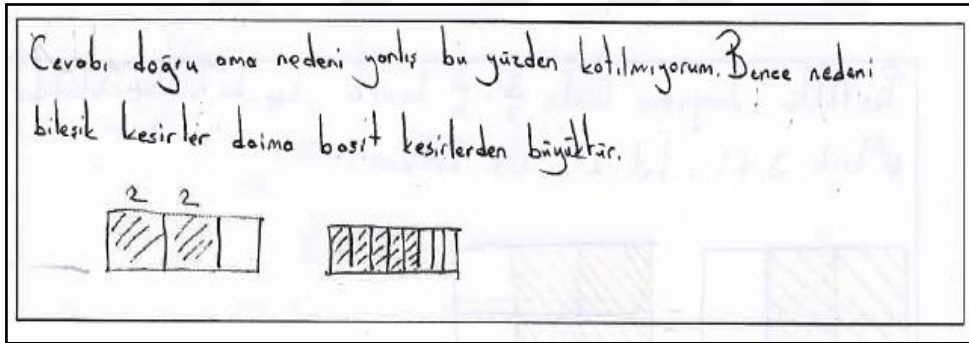 Cevabı doğru ama nedeni yanlış bu yüzden katılmıyorum. Bence nedeni
bileşik kesirler daima basit kesirlerden büyüktür.
2 2